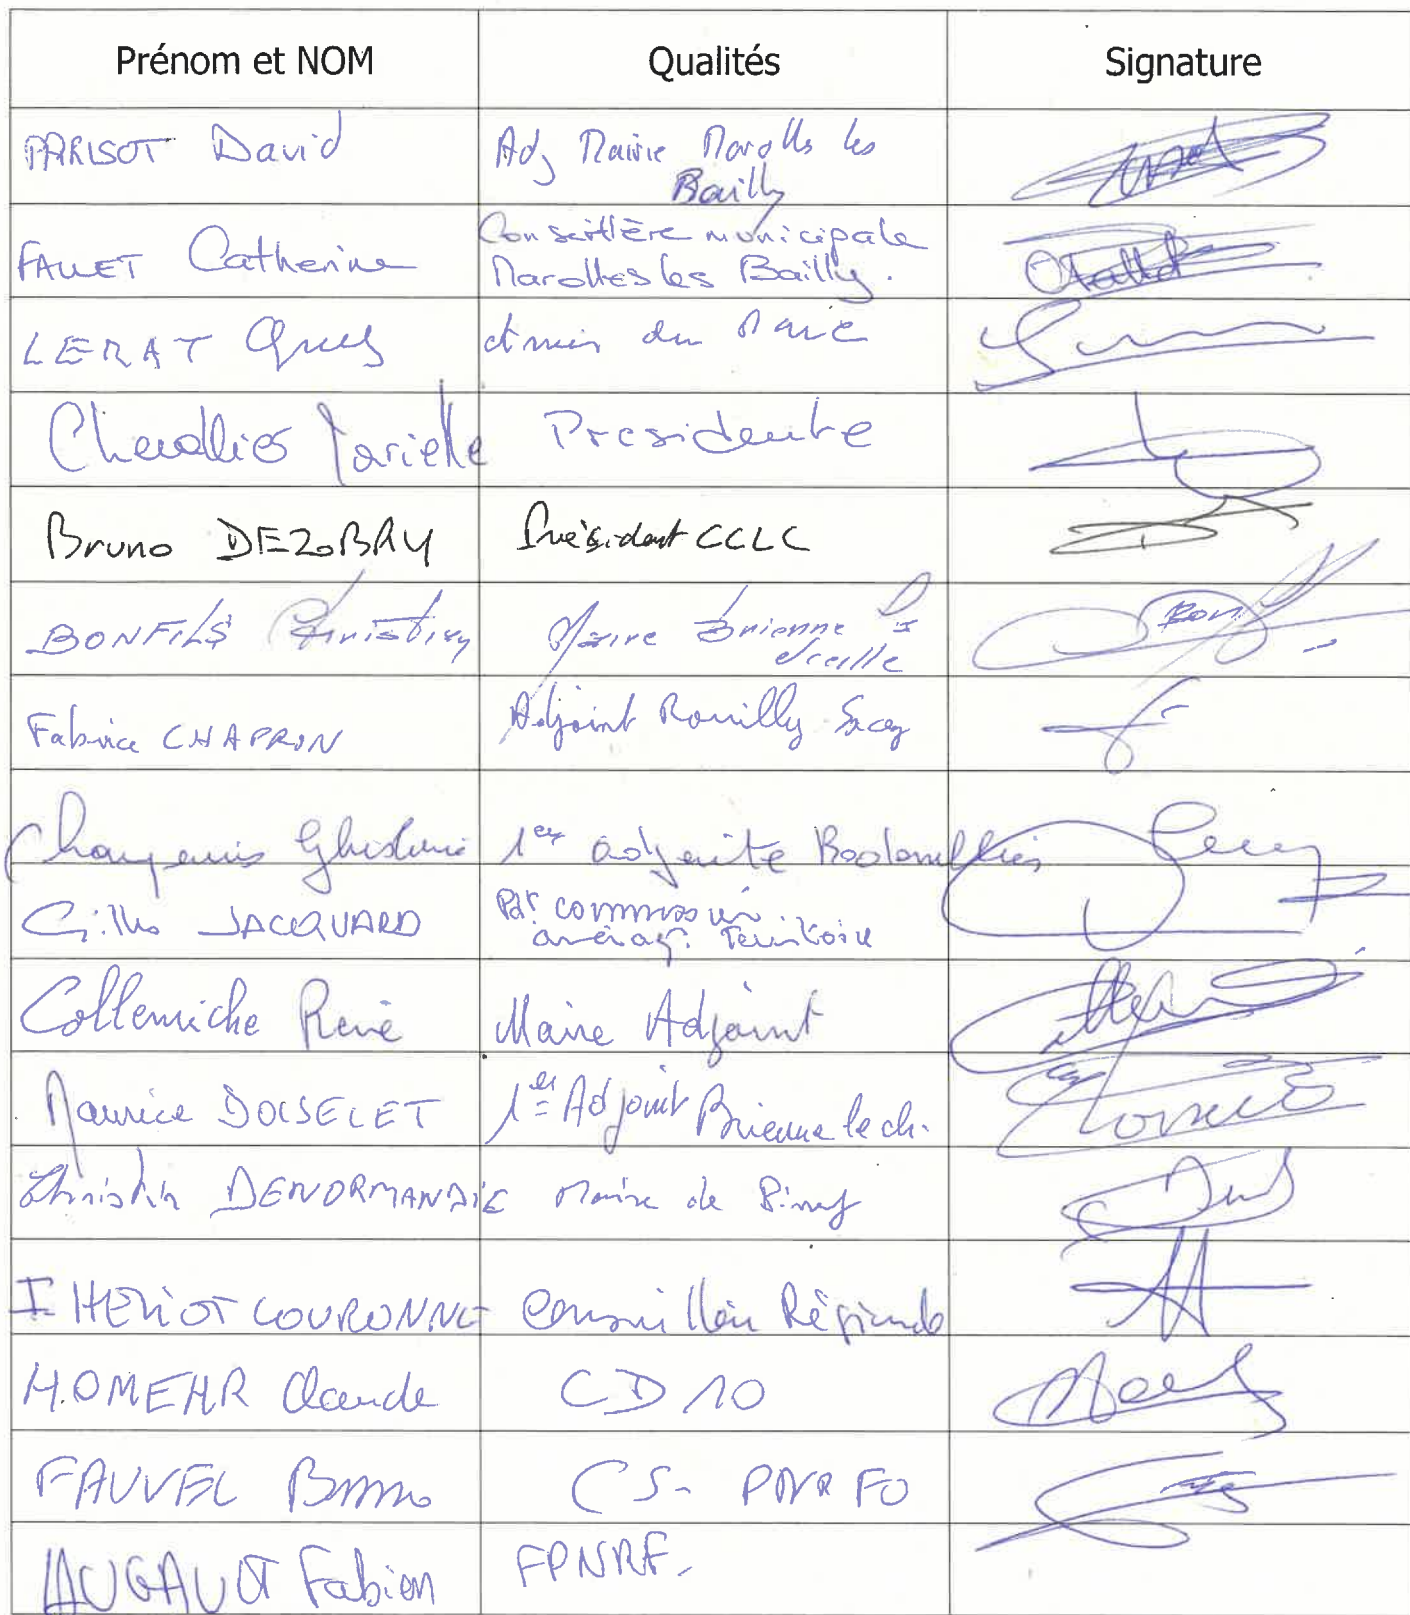 Prénom et NOM Qualités Signature
PARISOT David Adj Mairie Marolles les
Bailly
FALLET Catherine Conseillère municipale
Marolles les Bailly.
LERAT
Chevallier Marielle Presidente
Bruno DEZOBRY Président CCLC
BONFILS Christian Maire Brienne la
vieille
Fabrice CHAPRON Adjoint Rouilly Sacey
1er adjointe
Gilles JACQUARD Pdt commission
aménag. Territoire
Collemiche René Maire Adjoint
Maurice DOISELET 1er Adjoint Brienne le ch.
Christian DENORMANDIE Maire de Piney
I HELIOT COURONNE Conseillère Régionale
HOMEHR Claude CD 10
FAUVEL Bruno CS - PNR FO
AUGAUOT Fabien FPNRF.